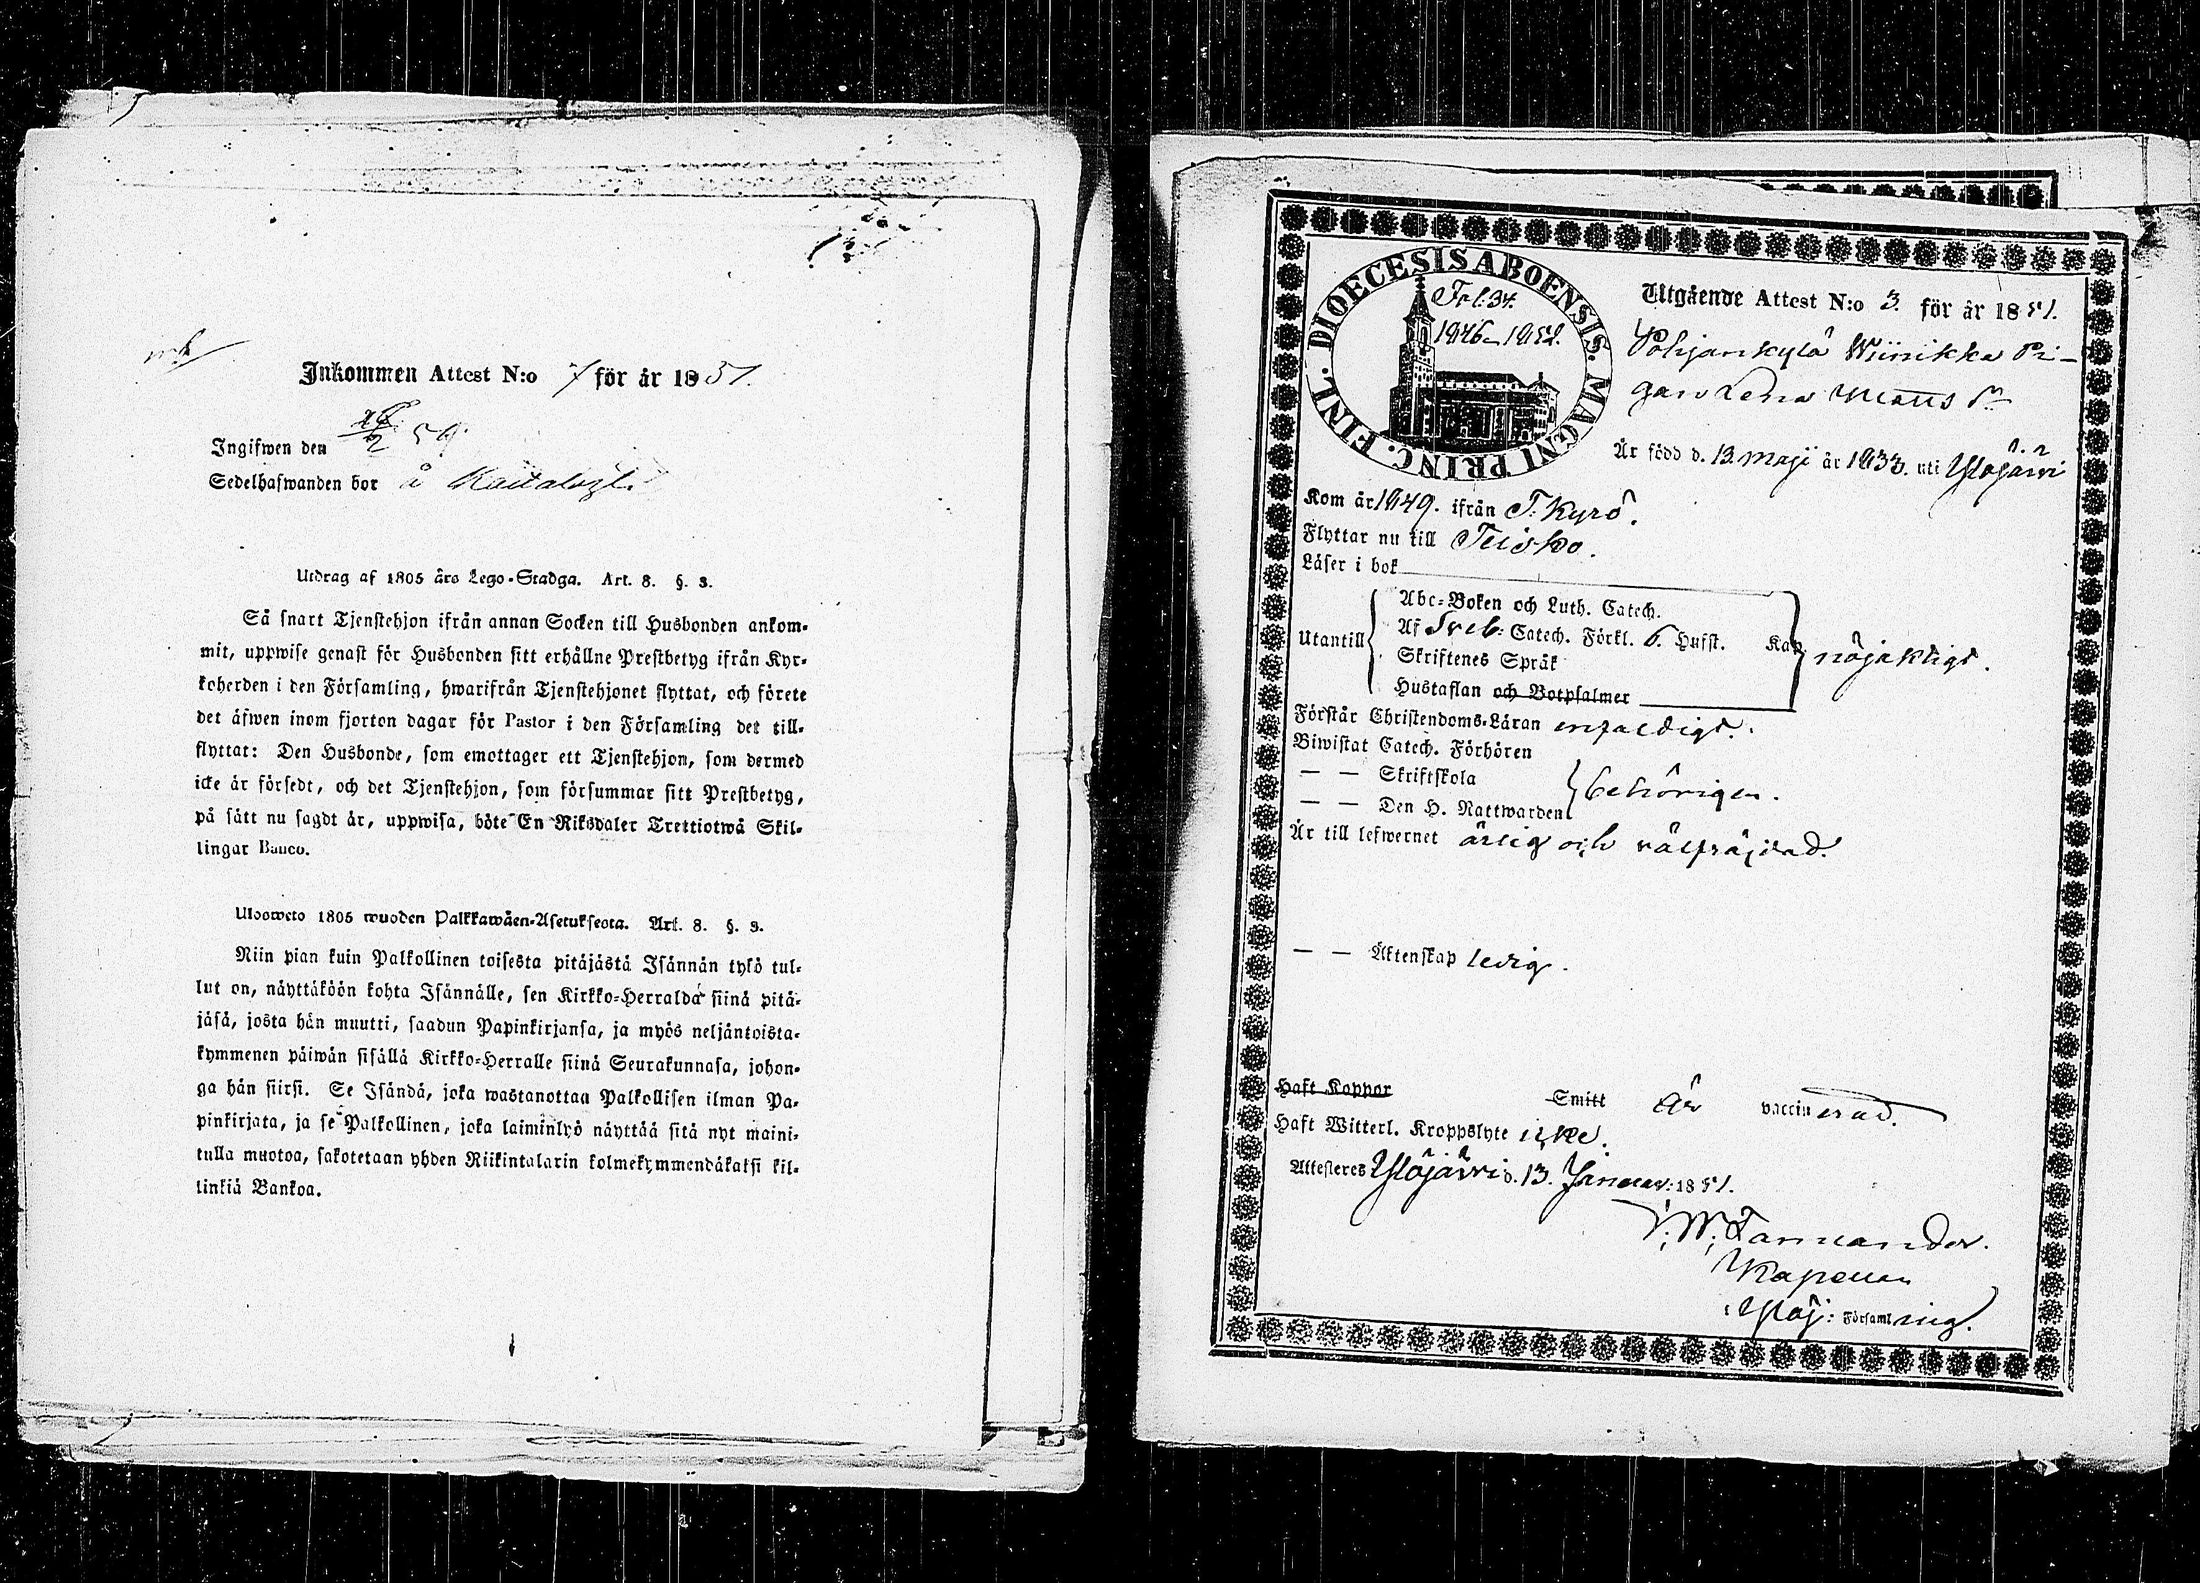 Inkommen Attest N:o 7 för år 1851.
Ingifwen den 16/2 51
Sedelhafwanden bor å
Utdrag af 1805 års Lego-Stadga. Art. 8. §. 3.
Så snart Tjenstehjon ifrån annan Socken till Husbonden ankom-
mit, uppwise genast för Husbonden sitt erhållne Prestbetyg ifrån Kyr-
koherden i den Församling, hwarifrån Tjenstehjonet flyttat, och förete
det äfwen inom fjorton dagar för Pastor i den Församling det till-
flyttat: Den Husbonde, som emottager ett Tjenstehjon, som dermed
icke är försedt, och det Tjenstehjon, som försummar sitt Prestbetyg,
på sätt nu sagdt är, uppwisa, böte En Riksdaler Trettiotwå Skil-
lingar Banco.
Ulosweto 1805 wuoden Palkkawäen-Asetuksesta. Art. 8. §. 3.
Niin pian kuin Palkollinen toisesta pitäjästä Isännän tykö tul-
lut on, näyttäköön kohta Isännälle, sen Kirkko-Herralda siinä pitä-
jäsä, josta hän muutti, saadun Papinkirjansa, ja myös neljäntoista-
kymmenen päiwän sisällä Kirkko-Herralle siinä Seurakunnasa, johon-
ga hän siirsi. Se Isändä, joka wastanottaa Palkollisen ilman Pa-
pinkirjata, ja se Palkollinen, joka laiminlyö näyttää sitä nyt maini-
tulla muotoa, sakotetaan yhden Riikintalarin kolmekymmendäkaksi kil-
linkiä Bankoa.
DIOECESIS ABOENSIS. MAGNI PRINC. FINL.
Fol: 34.
1846–1852.
Utgående Attest N:o 3. för år 1851.
Pohjankylä Wiinikka Pi-
gan Lena Matts dr
Är född d. 13 Maji år 1833. uti Ylöjärvi
Kom år 1849. ifrån T. Kyrö.
Flyttar nu till Teisko.
Läser i bok
Utantill
Abc-Boken och Luth. Catech.
Af Sveb: Catech. Förkl. 6. Hufst. Kap.
Skriftenes Språk
Hustaflan och Botpsalmer
nöjaktigt.
Förstår Christendoms-Läran enfaldigt.
Biwistat Catech. Förhören
— — Skriftskola
— — Den H. Nattwarden
behörigen.
Är till lefwernet ärlig och välfräjdad.
— — Äktenskap ledig.
Haft Koppor Smitt är vaccinerad.
Haft Witterl. Kroppslyte icke.
Attesteres Ylöjärvi d. 13. Januar: 1851.
Kapellan
i Ylöj: Församling.